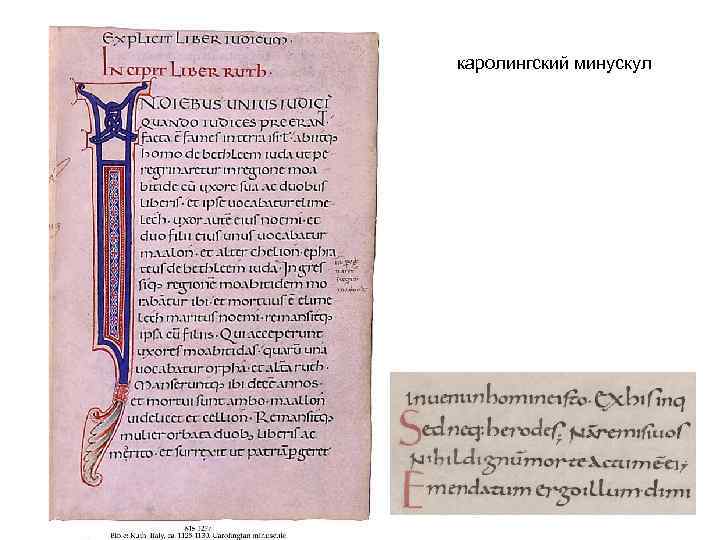 каролингский минускул
Explicit Liber Iudicum.
Incipit Liber Ruth.
IN DIEBUS UNIUS IUDICĪ
QUANDO IUDICES PREERAN
facta ē fames in terra
homo de bethleem iuda ut pe
regrinaretur in regione moa
bitide cū uxore sua ac duobus
liberis. et ipse vocabatur elime
lech. uxor autē eius noemi. et
duo filii eius unus vocabatur
maalon. et alter chelion. ephra
teus de bethleem iuda. Ingres
siq; regionē moabitidem mo
rabātur ibi. et mortuus ē elime
lech maritus noemi. remansitq;
ipsa cū filiis. Qui acceperunt
uxores moabitidas. quarū una
vocabatur orpha. et altā ruth.
Manseruntq; ibi decē annos.
et mortui sunt ambo. maalon
videlicet et cellion. Remansitq;
mulier orbata duob; liberis ac
et surrexit ut patriā pgeret
inuenunhomineisto. Exhisinq
Sedneq:herodes; Nāremisiuos
Nihildignūmorteaccumēci,
Emendatumergoillumdimi
Italy, ca. 1125-1130. Carolingian minuscule